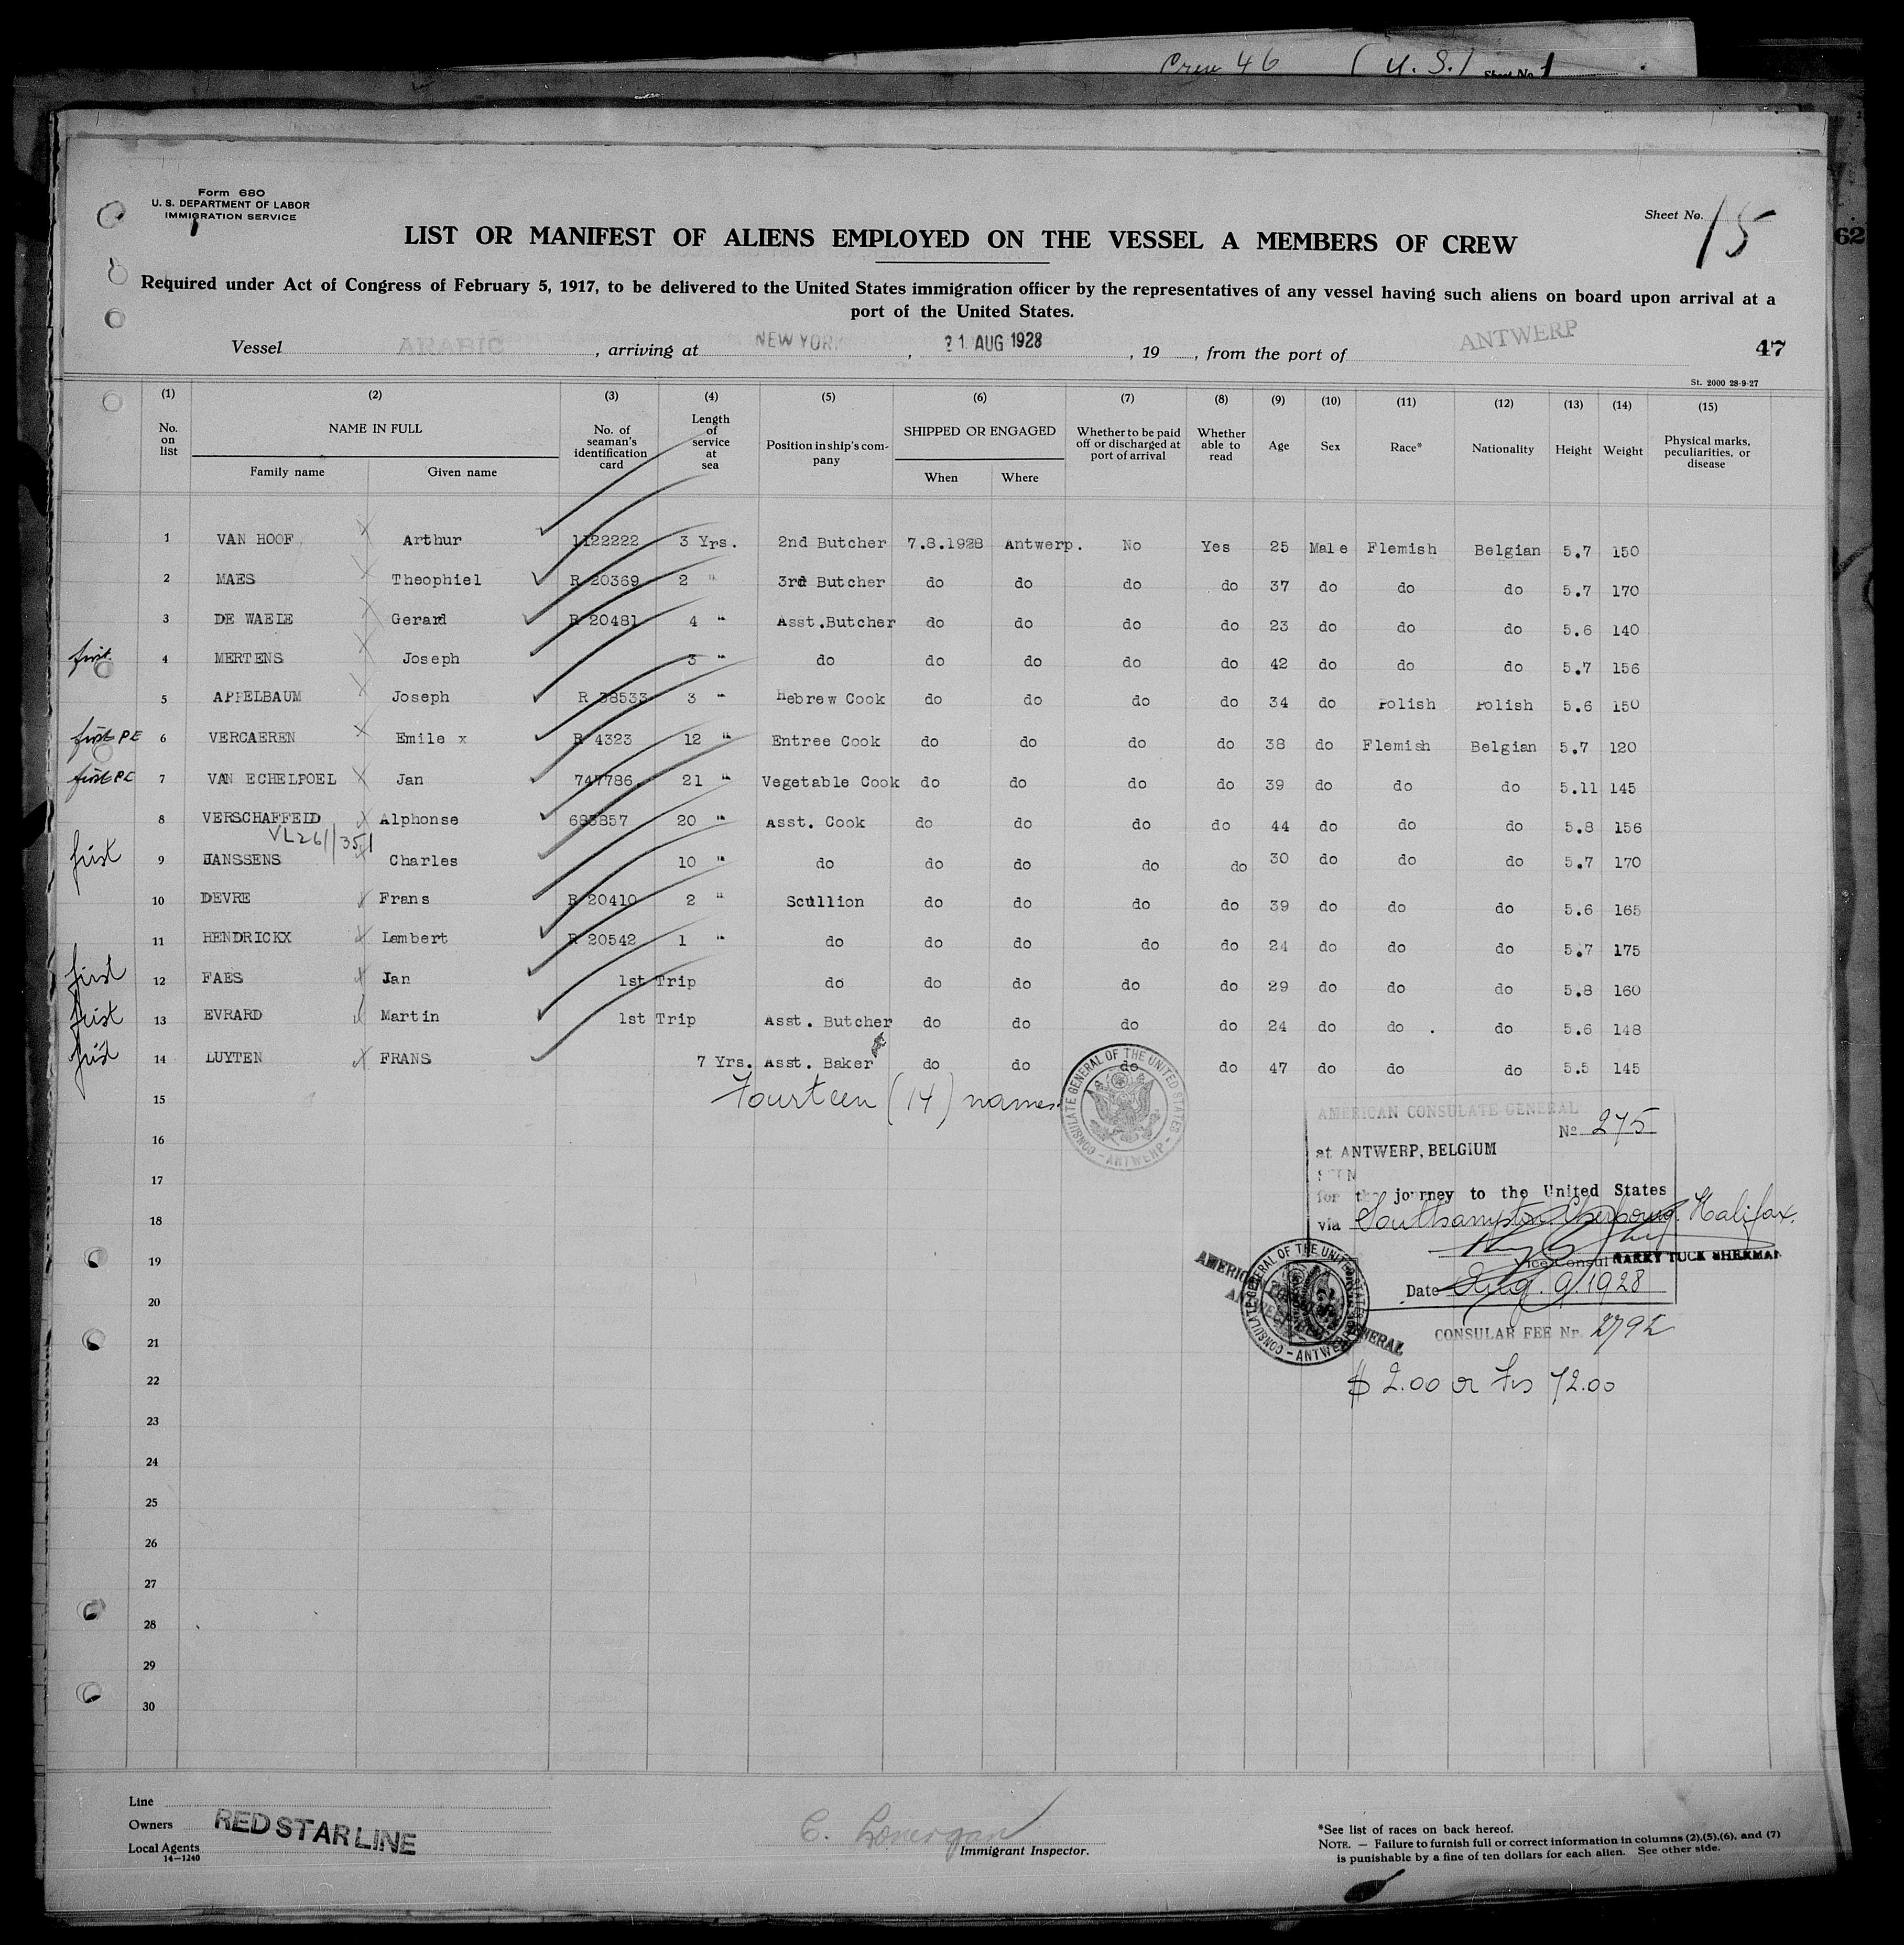 Crew 46 (U.S.) Sheet No. 1
Form 680
U. S. DEPARTMENT OF LABOR
IMMIGRATION SERVICE
Sheet No. 15
62
LIST OR MANIFEST OF ALIENS EMPLOYED ON THE VESSEL A MEMBERS OF CREW
Required under Act of Congress of February 5, 1917, to be delivered to the United States immigration officer by the representatives of any vessel having such aliens on board upon arrival at a
port of the United States.
Vessel ARABIC, arriving at NEW YORK, 21 AUG 1928, 19, from the port of ANTWERP 47
St. 2000 28-9-27
(1) (2) (3) (4) (5) (6) (7) (8) (9) (10) (11) (12) (13) (14) (15)
No. on list NAME IN FULL No. of seaman's identification card Length of service at sea Position in ship's company SHIPPED OR ENGAGED Whether to be paid off or discharged at port of arrival Whether able to read Age Sex Race* Nationality Height Weight Physical marks, peculiarities, or disease
Family name Given name When Where
1 VAN HOOF Arthur 1122222 3 Yrs. 2nd Butcher 7.8.1928 Antwerp. No Yes 25 Male Flemish Belgian 5.7 150
2 MAES Theophiel R 20369 2 " 3rd Butcher do do do do 37 do do do 5.7 170
3 DE WAELE Gerard R 20481 4 " Asst.Butcher do do do do 23 do do do 5.6 140
first 4 MERTENS Joseph 3 " do do do do do 42 do do do 5.7 156
5 APPELBAUM Joseph R 38533 3 " Hebrew Cook do do do do 34 do Polish Polish 5.6 150
first PE 6 VERCAEREN Emile x R 4323 12 " Entree Cook do do do do 38 do Flemish Belgian 5.7 120
first PE 7 VAN ECHELPOEL Jan 747786 21 " Vegetable Cook do do do do 39 do do do 5.11 145
8 VERSCHAFFEID Alphonse 683857 20 " Asst. Cook do do do do 44 do do do 5.8 156
first 9 JANSSENS Charles 10 " do do do do do 30 do do do 5.7 170
10 DEVRE Frans R 20410 2 " Scullion do do do do 39 do do do 5.6 165
11 HENDRICKX Lambert R 20542 1 " do do do do do 24 do do do 5.7 175
first 12 FAES Jan 1st Trip do do do do do 29 do do do 5.8 160
first 13 EVRARD Martin 1st Trip Asst. Butcher do do do do 24 do do . do 5.6 148
first 14 LUYTEN FRANS 7 Yrs. Asst. Baker do do do do 47 do do do 5.5 145
15
Fourteen (14) names
CONSULATE GENERAL OF THE UNITED STATES - ANTWERP -
AMERICAN CONSULATE GENERAL
16
No 275
at ANTWERP, BELGIUM
17
for the journey to the United States
18
via Southampton Cherbourg. Halifax.
19
Vice Consul HARRY TUCK SHERMAN
20
Date Aug. 9. 1928
21
CONSULAR FEE Nr. 2792
22
$ 2.00 or frs 72.00
23
24
25
26
27
28
29
30
Line
Owners RED STAR LINE
Local Agents
14-1240
Immigrant Inspector.
*See list of races on back hereof.
NOTE. — Failure to furnish full or correct information in columns (2),(5),(6), and (7)
is punishable by a fine of ten dollars for each alien. See other side.